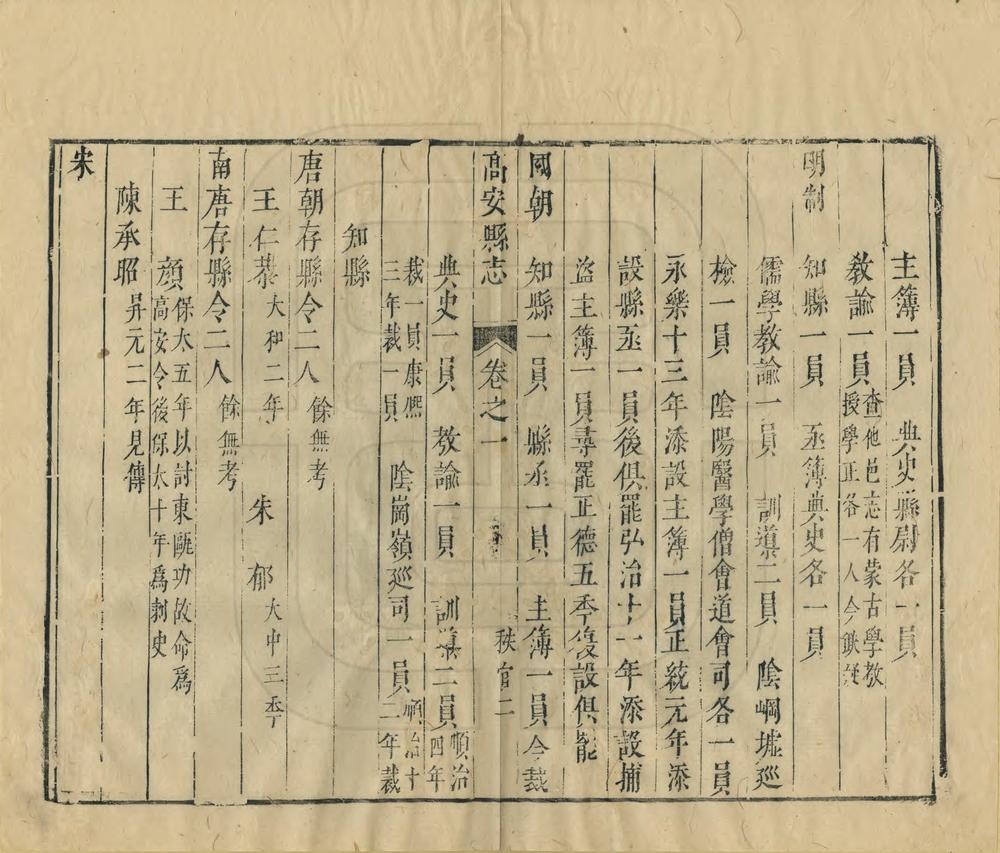 主簿一員　典史縣尉各一員
教諭一員查他邑志有蒙古學教
授學正各一人今缺疑
明制
知縣一員　丞簿典史各一員
儒學教諭一員　訓導二員　陰岡墟巡
檢一員　陰陽醫學僧會道會司各一員
永樂十三年添設主簿一員正統元年添
設縣丞一員後俱罷弘治十一年添設捕
盜主簿一員尋罷正德五季復設俱罷
國朝　知縣一員　縣丞一員　主簿一員今裁
高安縣志　卷之一　秩官二
典史一員　教諭一員　訓導二員順治四年
裁一員康熈
三年裁一員　陰崗嶺巡司一員順治十
二年裁
知縣
唐朝存縣令二人　餘無考
王仁恭大和二年　朱郁大中三季
南唐存縣令二人　餘無考
王顔保大五年以討東甌功故命爲
高安令後保大十年爲刺史
陳承昭昇元二年見傳
宋